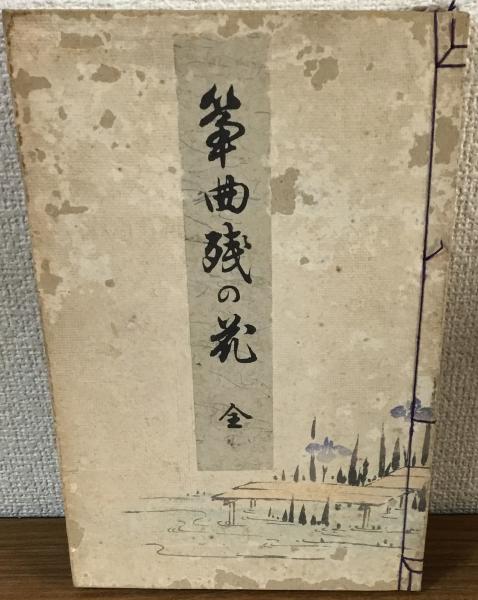 箏曲残の花 全